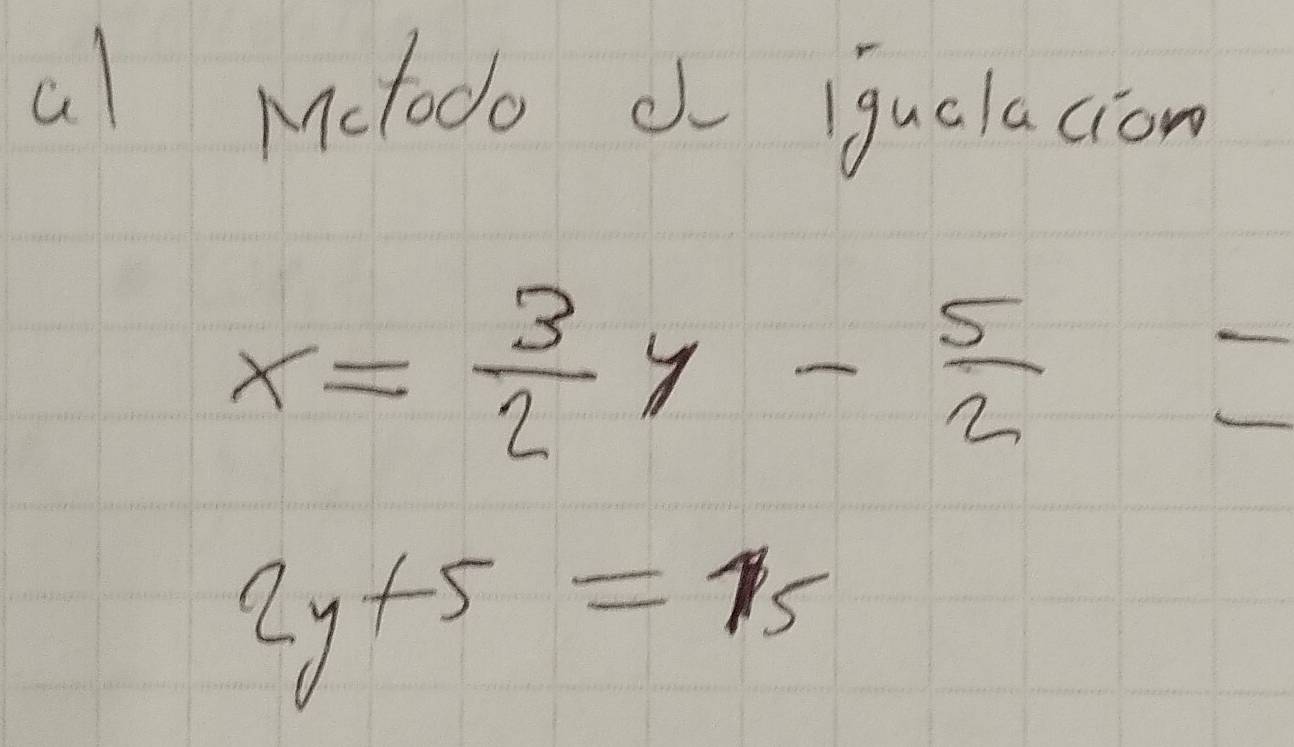 a) Metodo de igualacion
x = 3/2 y - 5/2 =
2y+5 = 15